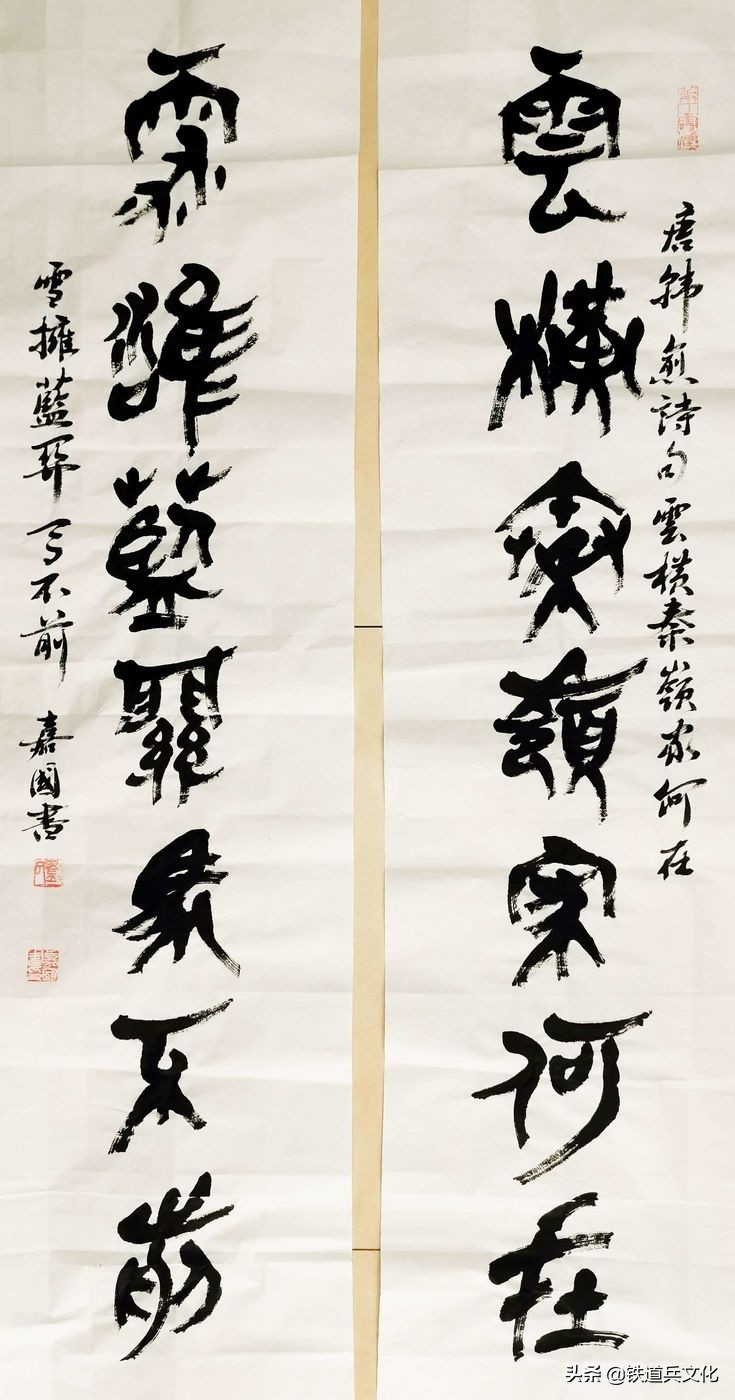 雲橫秦嶺家何在
雪擁藍關馬不前
唐韓愈詩句雲橫秦嶺家何在
雪擁藍關馬不前 嘉國書
头条 @铁道兵文化